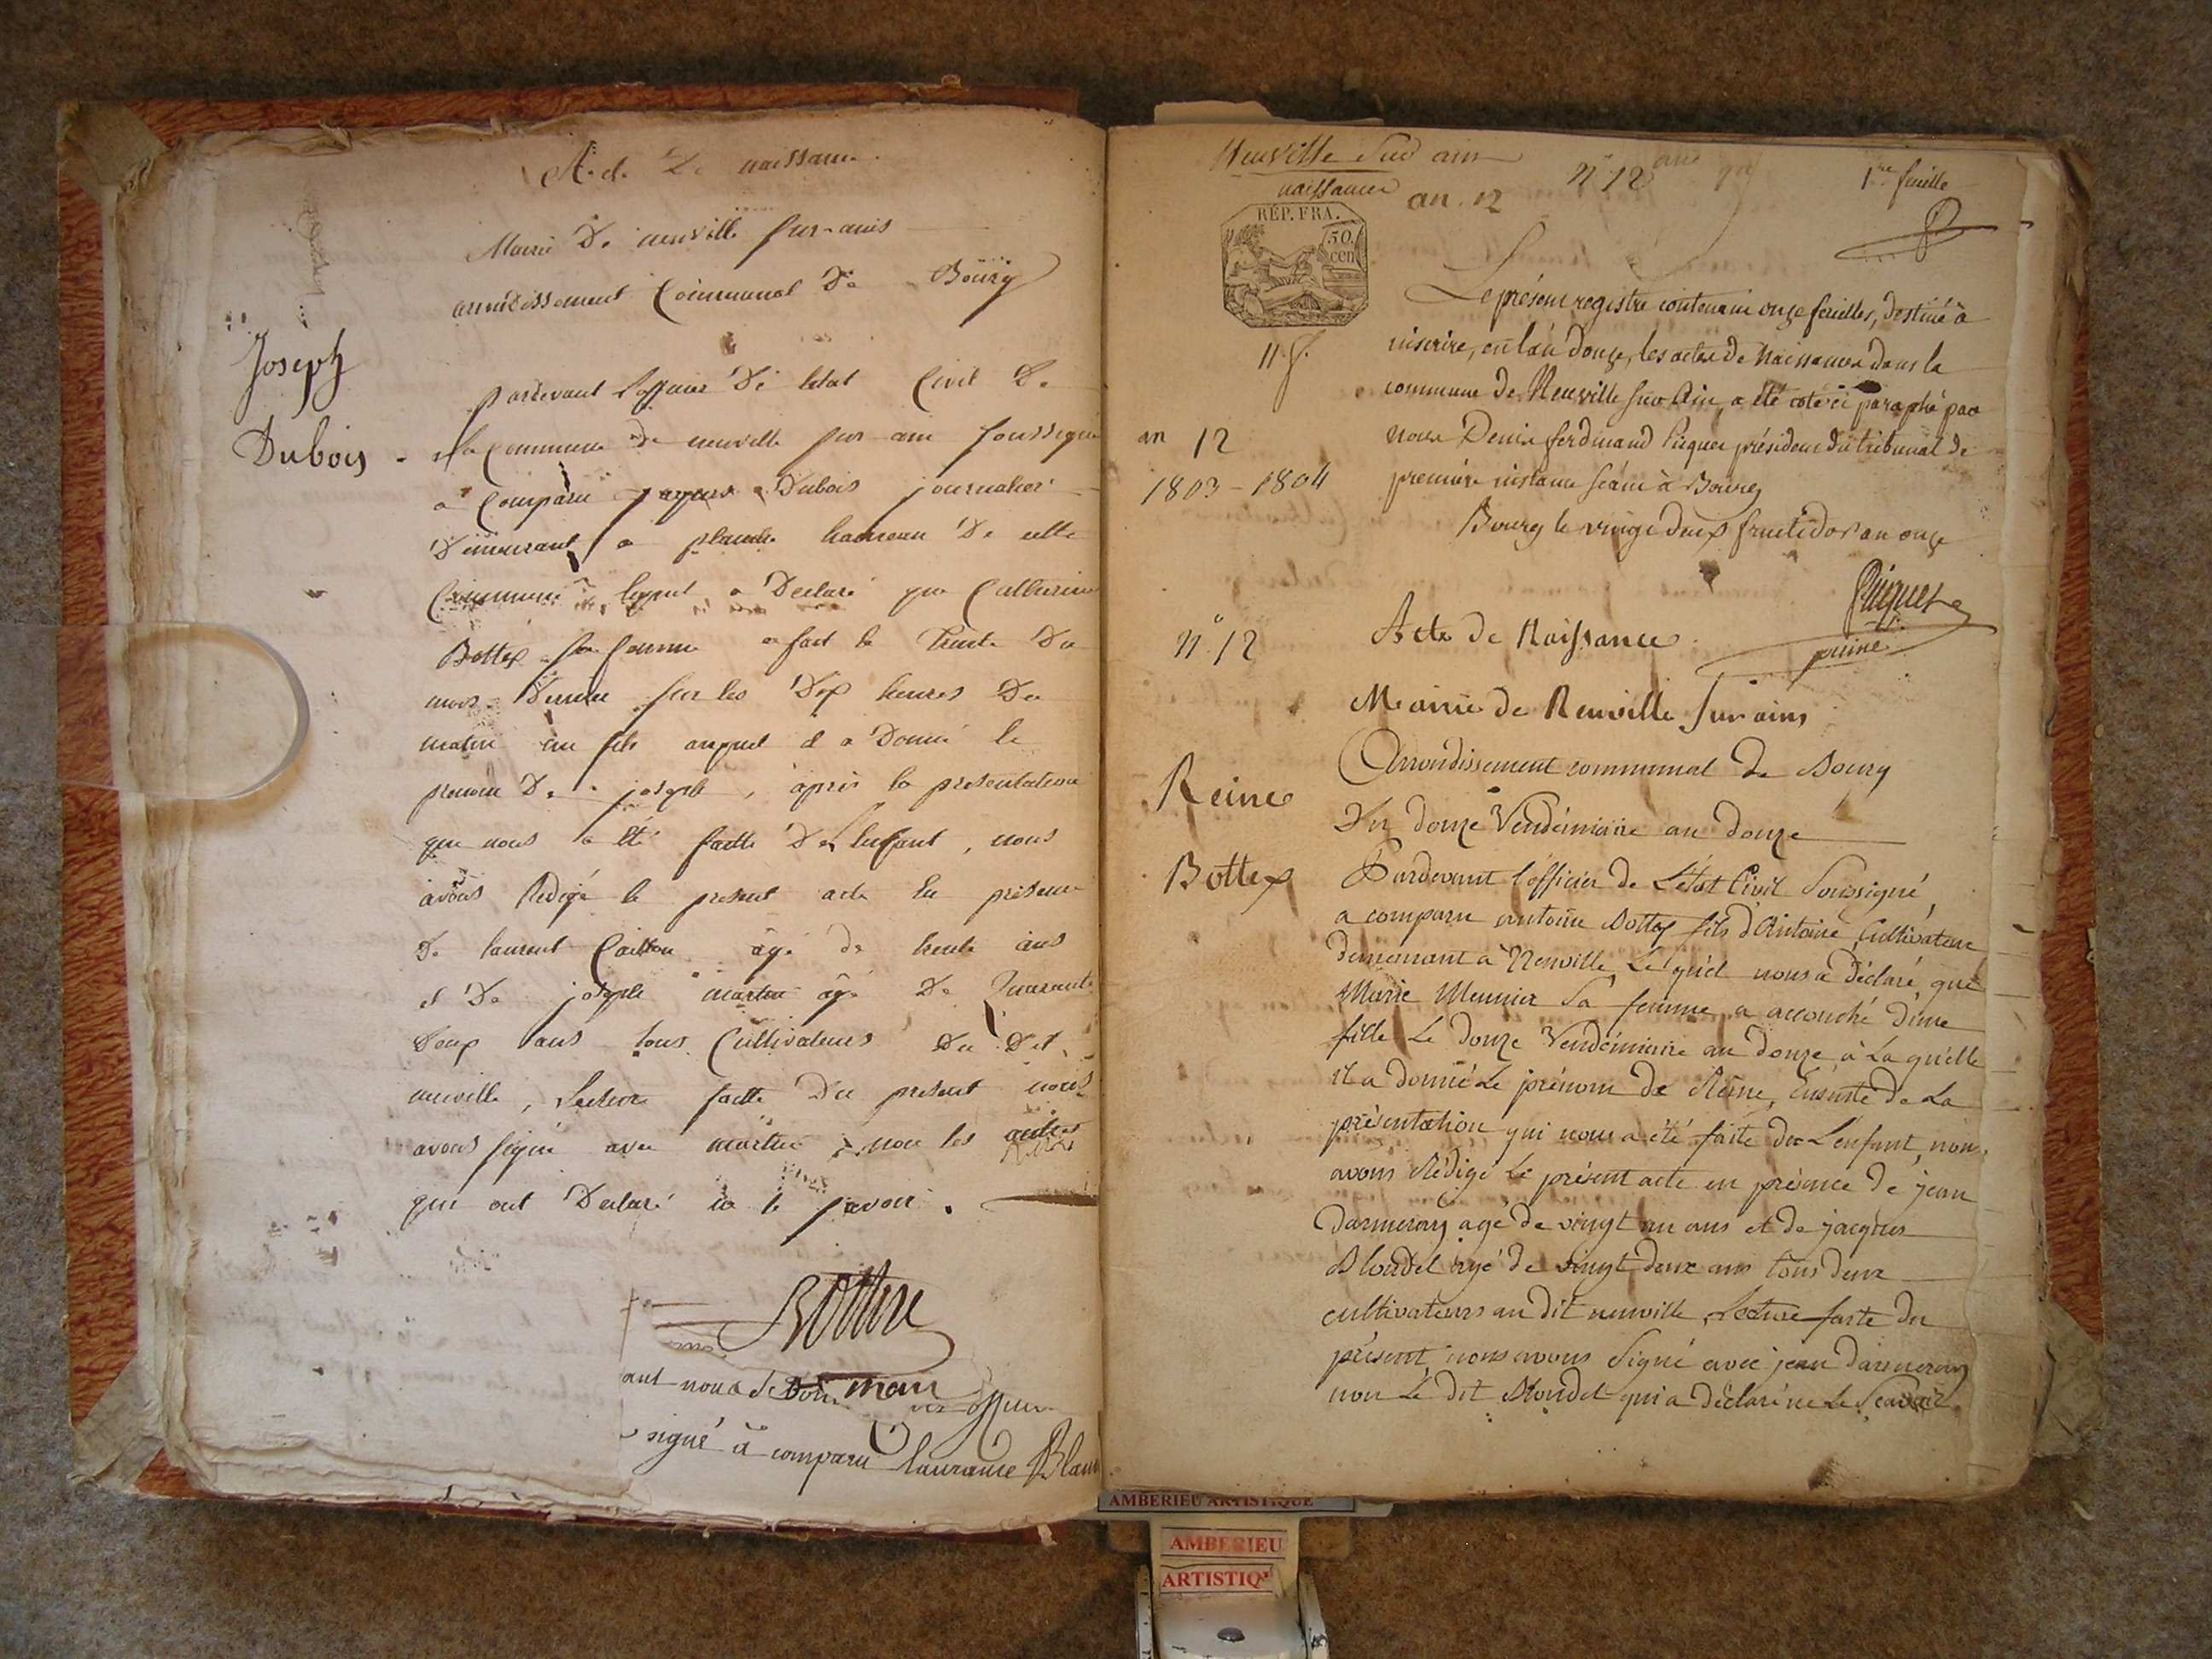 Acte De naissance
Mairie De neuville sur-ains
arrondissement Communal De Bourg
Joseph
Dubois
pardevant L'officier De letat Civil De
la Commune de neuville sur ain soussigné
a Comparu Dubois journalier
Demeurant a hameau De cette
Commune lequel a Declaré que Catherine
Bottex sa femme a fait le trente Du
mois Dernier sur les Dix heures Du
matin un fils auquel il a Donné le
prenom De joseph, après la presentation
que nous a été faitte De Lenfant, nous
avons Redigé le present acte En presence
De laurent agé de trente ans
et De joseph martin agé De Quarante
Deux ans tous Cultivateurs Du Dit
neuville, Lecture faitte Du present nous
avons signé avec martin non les autres
qui ont Declaré ne le savoir.
ant nous
signé à comparu laurance Blanc
Neuville sur ain
naissances an. 12
n° 12
1re feuille
RÉP. FRA.
50.
cen
11 f.
Le présent registre contenant onze feuilles, destiné à
inscrire, en l'an douze, les actes de Naissances dans la
commune de Neuville sur Ain, a été coté et paraphé par
nous Denis ferdinand Piquet président du tribunal de
première instance séant à Bourg
Bourg le vingt deux fructidor an onze
an 12
1803-1804
Piquet
puiné
n° 12
Acte de Naissance
Mairie de Neuville sur ains
Arrondissement communal de Bourg
Reine
Bottex
Du douze Vendémiaire an douze
Pardevant l'officier de L'état Civil Soussigné,
a comparu antoine Bottex fils d'Antoine, Cultivateur
demeurant à Neuville, Lequel nous a déclaré que
Marie Meunier Sa femme, a accouché d'une
fille Le douze Vendémiaire an douze à Laquelle
il a donné Le prénom de Reine, Ensuite de La
présentation qui nous a été faite de L'enfant, nous
avons Rédigé Le présent acte en présence de jean
Darmeran agé de vingt un ans et de jacques
Blondel agé de vingt deux ans tous deux
cultivateurs au dit neuville, Lecture faite du
présent nous avons Signé avec jean darmeran
non Le dit Blondel qui a déclaré ne Le Scavoir
AMBERIEU ARTISTIQUE
AMBERIEU
ARTISTIQ